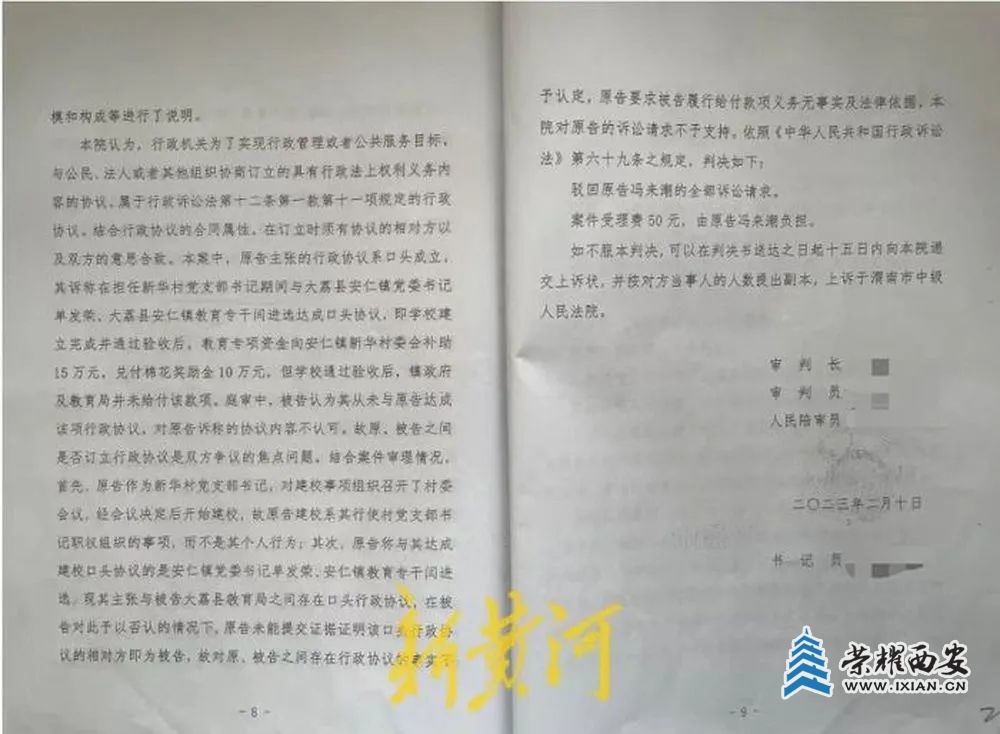 模和构成等进行了说明。
本院认为，行政机关为了实现行政管理或者公共服务目标，
与公民、法人或者其他组织协商订立的具有行政法上权利义务内
容的协议，属于行政诉讼法第十二条第一款第十一项规定的行政
协议。结合行政协议的合同属性，在订立时须有协议的相对方以
及双方的意思合致。本案中，原告主张的行政协议系口头成立，
其诉称在担任新华村党支部书记期间与大荔县安仁镇党委书记
单发荣、大荔县安仁镇教育专干闫进选达成口头协议，即学校建
立完成并通过验收后，教育专项资金向安仁镇新华村委会补助
15万元，兑付棉花奖励金10万元，但学校通过验收后，镇政府
及教育局并未给付该款项。庭审中，被告认为其从未与原告达成
该项行政协议，对原告诉称的协议内容不认可。故原、被告之间
是否订立行政协议是双方争议的焦点问题。结合案件审理情况，
首先，原告作为新华村党支部书记，对建校事项组织召开了村委
会议，经会议决定后开始建校，故原告建校系其行使村党支部书
记职权组织的事项，而不是其个人行为；其次，原告称与其达成
建校口头协议的是安仁镇党委书记单发荣、安仁镇教育专干闫进
选，现其主张与被告大荔县教育局之间存在口头行政协议，在被
告对此予以否认的情况下，原告未能提交证据证明该口头行政协
议的相对方即为被告，故对原、被告之间存在行政协议的事实不
- 8 -
予认定，原告要求被告履行给付款项义务无事实及法律依据，本
院对原告的诉讼请求不予支持。依照《中华人民共和国行政诉讼
法》第六十九条之规定，判决如下：
驳回原告冯来潮的全部诉讼请求。
案件受理费50元，由原告冯来潮负担。
如不服本判决，可以在判决书送达之日起十五日内向本院递
交上诉状，并按对方当事人的人数提出副本，上诉于渭南市中级
人民法院。
审 判 长
审 判 员
人民陪审员
二〇二三年二月十日
书 记 员
- 9 -
新黄河
荣耀西安
WWW.IXIAN.CN